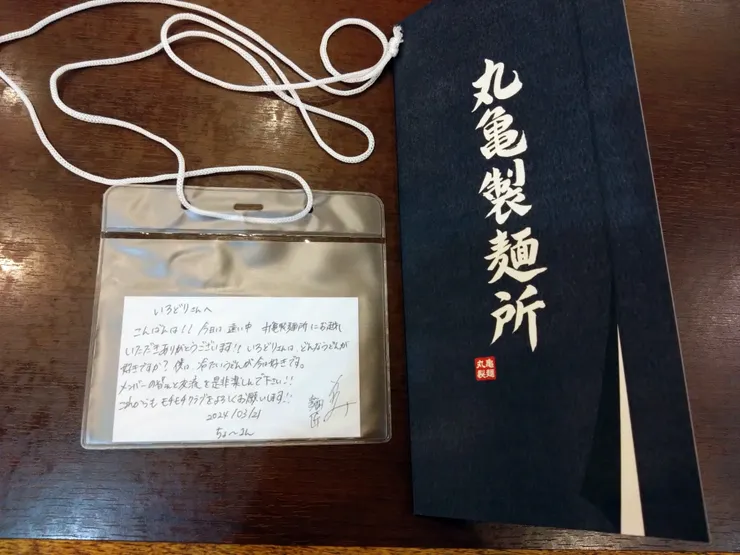 いろどりさんへ
こんばんは!! 今日は 遠い中 丸亀製麺所にお越し
いただきありがとうございます!! いろどりさんは、どんなうどんが
好きですか? 僕は、冷たいうどんが今は好きです。
メンバーの皆さんと交流を是非楽しんで下さい!!
これからもモチモチクラブをよろしくお願いします!!
2024/03/21
ちょーさん
麺匠
丸亀製麺所
丸亀
製麺